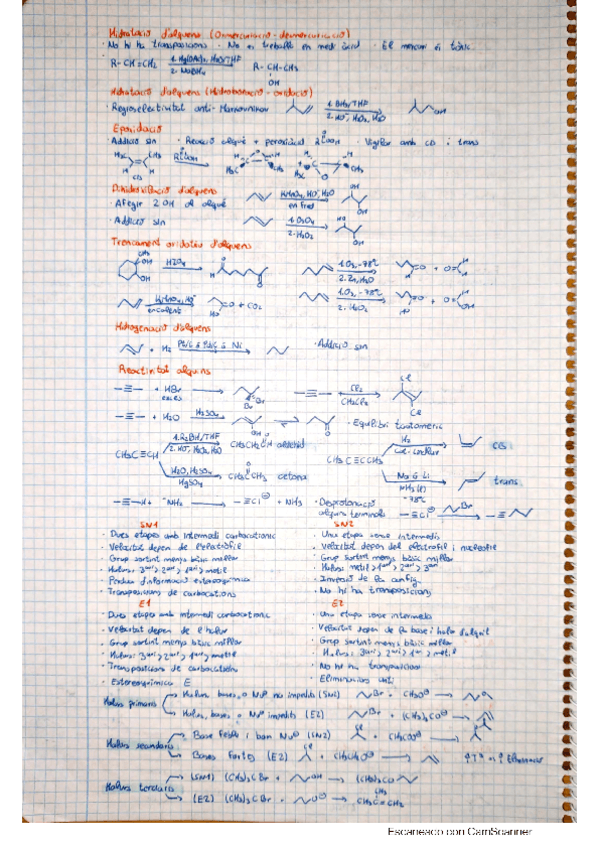 Hidratació d'alquens (Oximercuriació - desmercuriació)
· No hi ha transposicions · No es treballa en medi àcid · El mercuri és tòxic
R-CH=CH₂ 1. Hg(OAc)₂, H₂O/THF 2. NaBH₄ R-CH-CH₃ OH
Hidratació d'alquens (Hidroboració - oxidació)
· Regioselectivitat anti-Markovnikov 1. BH₃/THF 2. HO⁻, H₂O₂, H₂O OH
Epoxidació
· Addició sin · Reacció alquè + peroxiàcid · Vigilar amb cis i trans
Dihidroxilació d'alquens
· Afegir 2 OH al alquè KMnO₄, HO⁻, H₂O en fred OH
· Addició sin 1. OsO₄ 2. H₂O₂ HO OH
Trencament oxidatiu d'alquens
CH₃ OH OH HIO₄ H O 1. O₃, -78ºC 2. Zn, H₂O
KMnO₄, HO⁻ en calent HO O + CO₂ 1. O₃, -78ºC 2. H₂O₂
Hidrogenació d'alquens
+ H₂ · Addició sin
Reactivitat alquins
+ HBr excés Br Br Cl₂ CH₂Cl₂ Cl Cl
+ H₂O H₂SO₄ OH O · Equilibri tautomèric
CH₃C≡CH 1. R₂BH/THF 2. HO⁻, H₂O₂, H₂O CH₃CH₂CH aldehid
H₂O, H₂SO₄ HgSO₄ CH₃CCH₃ cetona
CH₃C≡CCH₃ H₂ cat. Lindlar cis
Na ó Li NH₃ (l) -78ºC trans
-≡-H + ⁻NH₂ -≡C|⊖ + NH₃ · Desprotonació alquins terminals -≡C|⊖ Br
SN1
· Dues etapes amb intermedi carbocatiònic
· Velocitat depen de l'electròfil
· Grup sortint menys bàsic millor
· Halurs: 3ari > 2ari > 1ari > metil
· Perdua d'informació estereoquímica
· Transposicions de carbocations
SN2
· Una etapa sense intermedis
· Velocitat depen del electròfil i nucleòfil
· Grup sortint menys bàsic millor
· Halurs: metil > 1ari > 2ari > 3ari
· Inversió de la config.
· No hi ha transposicions
E1
· Dues etapes amb intermedi carbocatiònic
· Velocitat depen de l'halur
· Grup sortint menys bàsic millor
· Halurs: 3ari > 2ari > 1ari > metil
· Transposicions de carbocations
· Estereoquímica E
E2
· Una etapa sense intermedis
· Velocitat depen de la base i halur d'alquil
· Grup sortint menys bàsic millor
· Halurs: 3ari > 2ari > 1ari > metil
· No hi ha transposicions
· Eliminacions anti
Halurs primaris
Halurs, bases o Nu⊖ no impedits (SN2) Br + CH₃O⊖
Halurs, bases o Nu⊖ impedits (E2) Br + (CH₃)₃CO⊖
Halurs secundaris
Base feble i bon Nu⊖ (SN2)
Bases forts (E2) Cl + CH₃CH₂O⊖
Halurs terciaris
(SN1) (CH₃)₃CBr + OH (CH₃)₃CO
(E2) (CH₃)₃CBr + O⊖ CH₃C=CH₂ CH₃
Escaneado con CamScanner